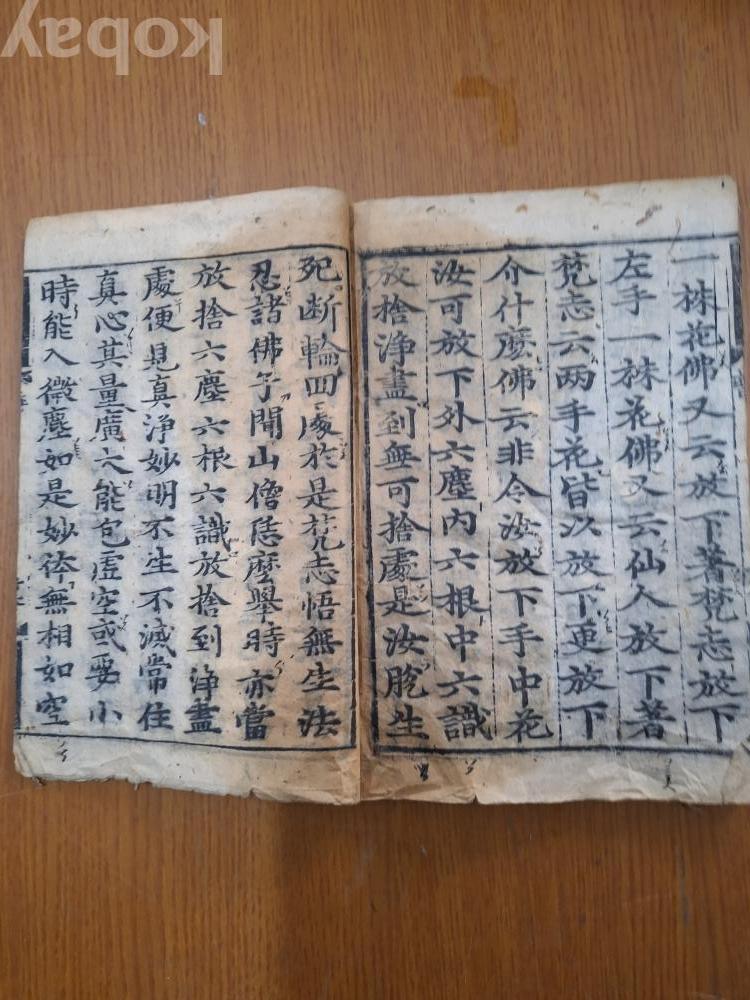 kobay
一株花佛又云放下著梵志放下
左手一株花佛又云仙人放下著
梵志云两手花皆以放下更放下
介什麽佛云非令汝放下手中花
汝可放下外六塵內六根中六識
放捨淨盡到無可捨處是汝脫生
死断輪回處於是梵志悟無生法
忍諸佛子聞山僧恁麽舉時亦當
放捨六塵六根六識放捨到淨盡
處便見真淨妙明不生不滅常住
真心其量廣大能包虛空或要小
時能入微塵如是妙体無相如空